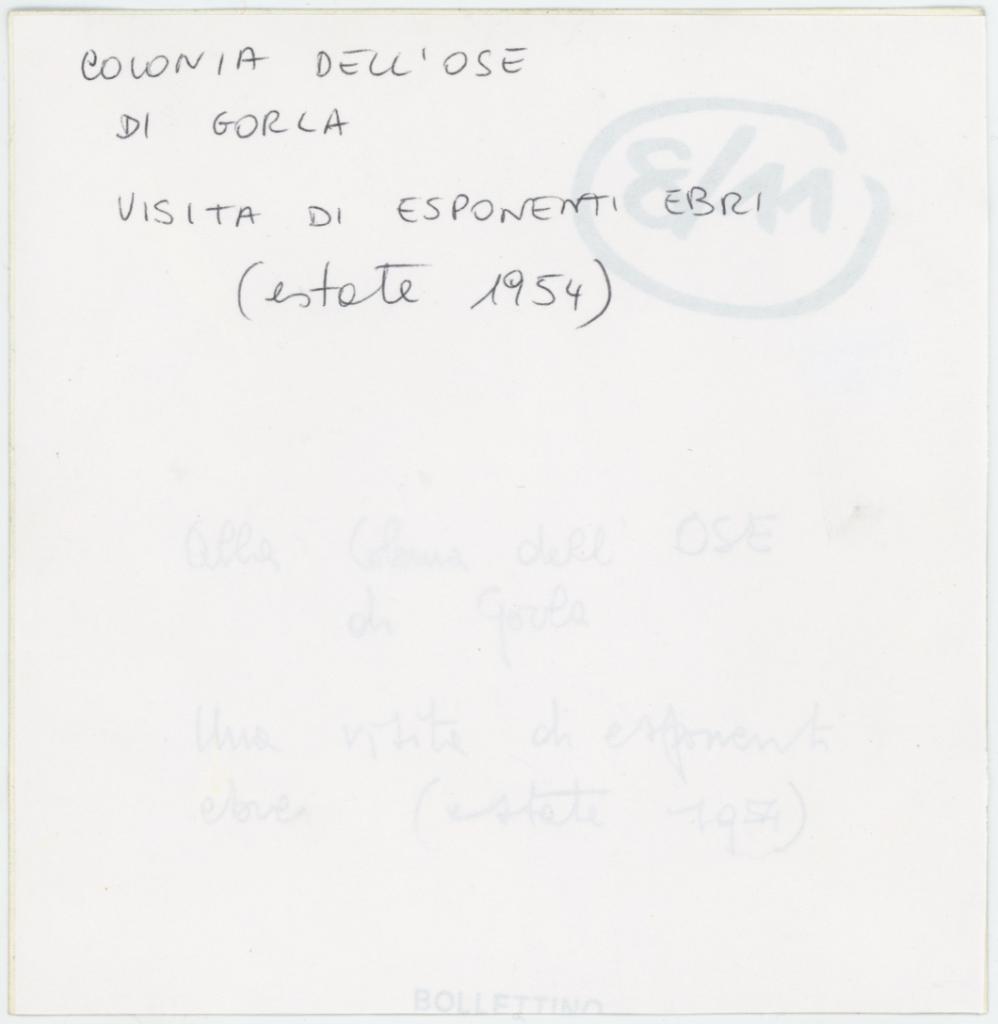 COLONIA DELL'OSE
DI GORLA
VISITA DI ESPONENTI EBRI
(estate 1954)
alla Colonia dell' OSE
di Gorla
Una visita di esponenti
ebrei (estate 1954)
BOLLETTINO